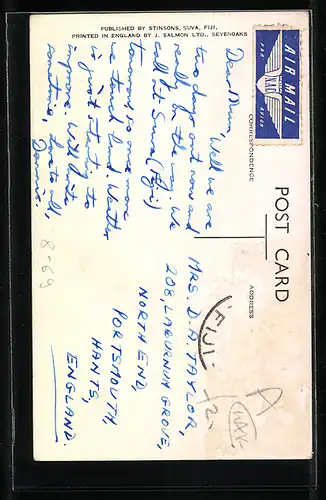 PUBLISHED BY STINSONS, SUVA, FIJI,
PRINTED IN ENGLAND BY J. SALMON LTD., SEVENOAKS
POST CARD
CORRESPONDENCE
ADDRESS
AIR MAIL
PAR AVION
Dear Mum, Well we are
two days out now and
really on the way. We
call at Suva (Fiji)
tomorrow so one more
we stand land. Weather
is just starting to
improve. Will write
sometime, love to all,
Dennis.
8-69
MRS. D. A. TAYLOR,
208, LABURNUM GROVE,
NORTH END,
PORTSMOUTH,
HANTS,
ENGLAND.
FIJI